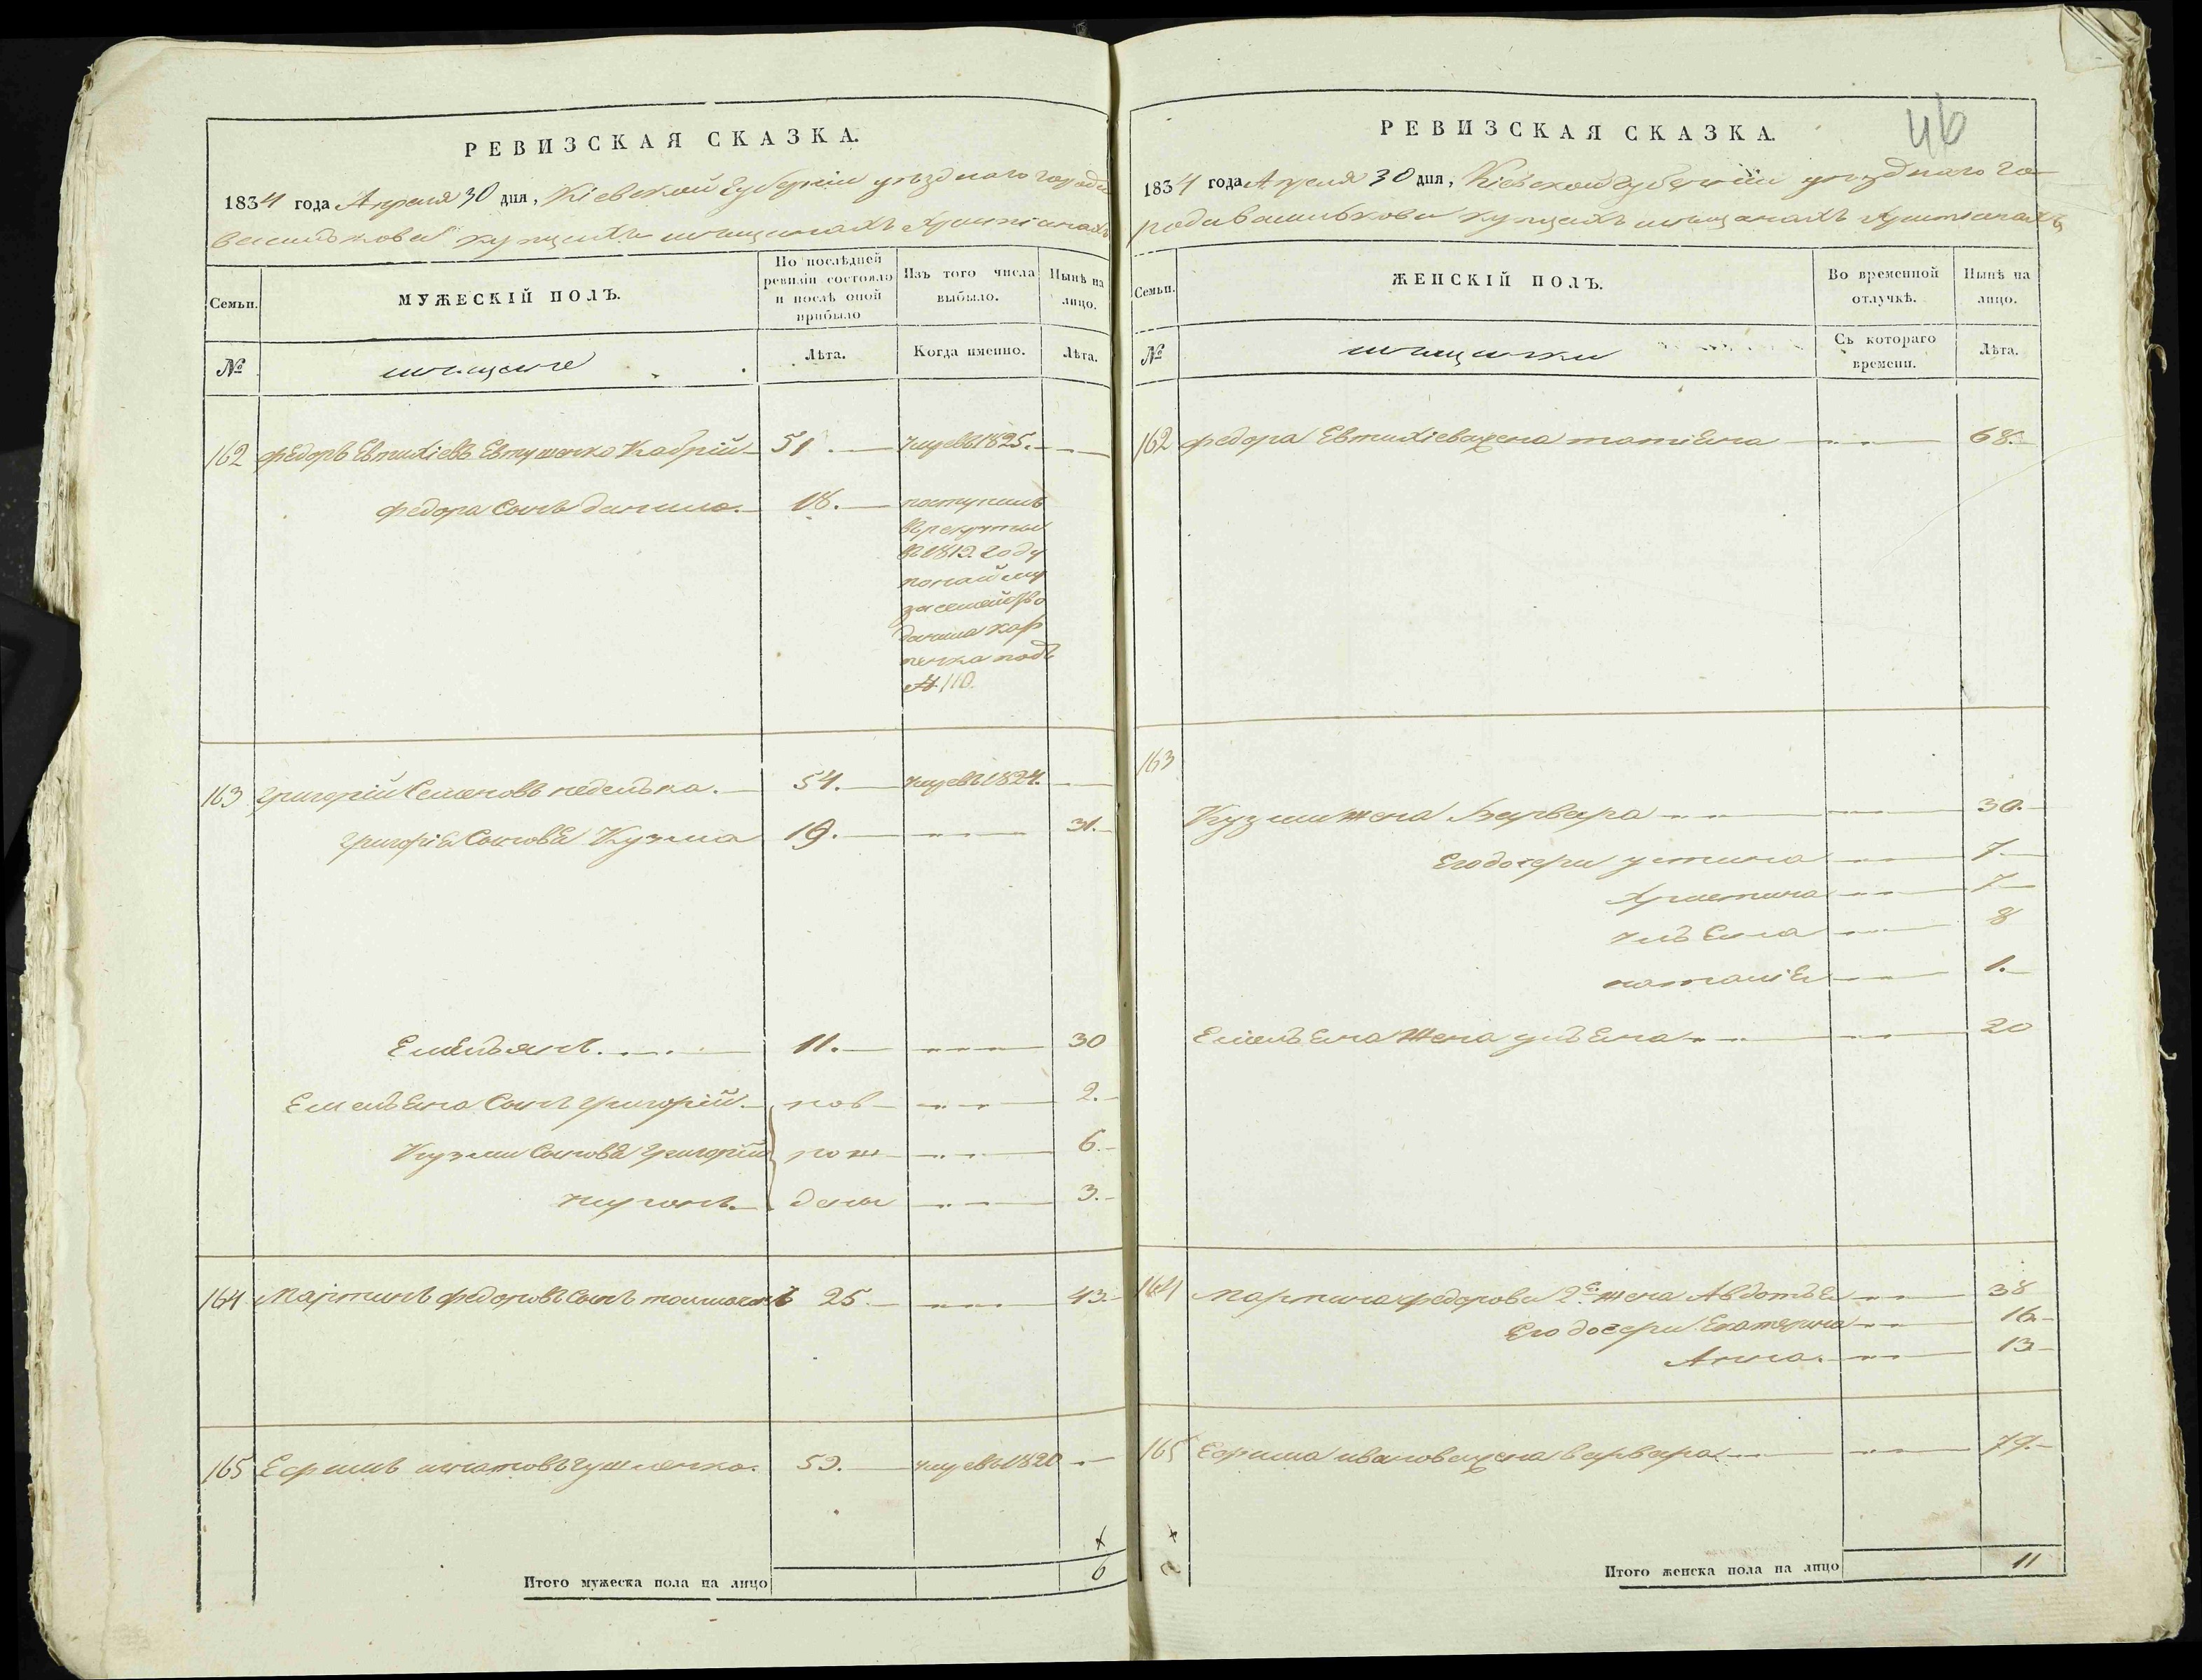 РЕВИЗСКАЯ СКАЗКА.
1834 года Апреля 30 дня, Кіевской Губерніи уезднаго города
василькова купцахъ мещанахъ Христіанахъ
Семьи.
МУЖЕСКІЙ ПОЛЪ.
По послѣдней ревизіи состояло и послѣ оной прибыло
Изъ того числа выбыло.
Нынѣ на лицо.
№
мещане
Лѣта.
Когда именно.
Лѣта.
162 федоръ Евтихіевъ Евтушенко 51. умре въ 1825.
федора Сынъ данило. 18. поступилъ
в рекруты
въ 1819. году
по найму
за семейство
данила кар
пенка подъ
№. 110.
163 григорій Семеновъ неделька. 54. умре въ 1824.
григорія Сыновья Кузма 19. 31.
Емельянъ. 11. 30
Емельяна Сынъ григорій. нов 2.
Кузми Сыновья григорій рож 6.
мирон. дены 3.
164 Мартинъ федоровъ Сынъ 25. 43.
165 Ефимъ 59. умре въ 1820
Итого мужеска пола на лицо 6
46
РЕВИЗСКАЯ СКАЗКА.
1834 года Апреля 30 дня, Кіевской губерніи уезднаго го
рода василькова купцахъ мещанахъ Христіанахъ
Семьи.
ЖЕНСКІЙ ПОЛЪ.
Во временной отлучкѣ.
Нынѣ на лицо.
№
мещанки
Съ котораго времени.
Лѣта.
162 федора Евтихіева жена татіяна 68.
163
Кузми жена Варвара 30.
Его дочери устина 7
Христина 7
ульяна 8
наталія 1.
Емельяна жена ульяна 20
164 мартина федорова 2я жена Авдотья 38
Его дочери Екатерина 16
Анна. 13
165 Ефима иванова жена варвара 77.
Итого женска пола на лицо 11